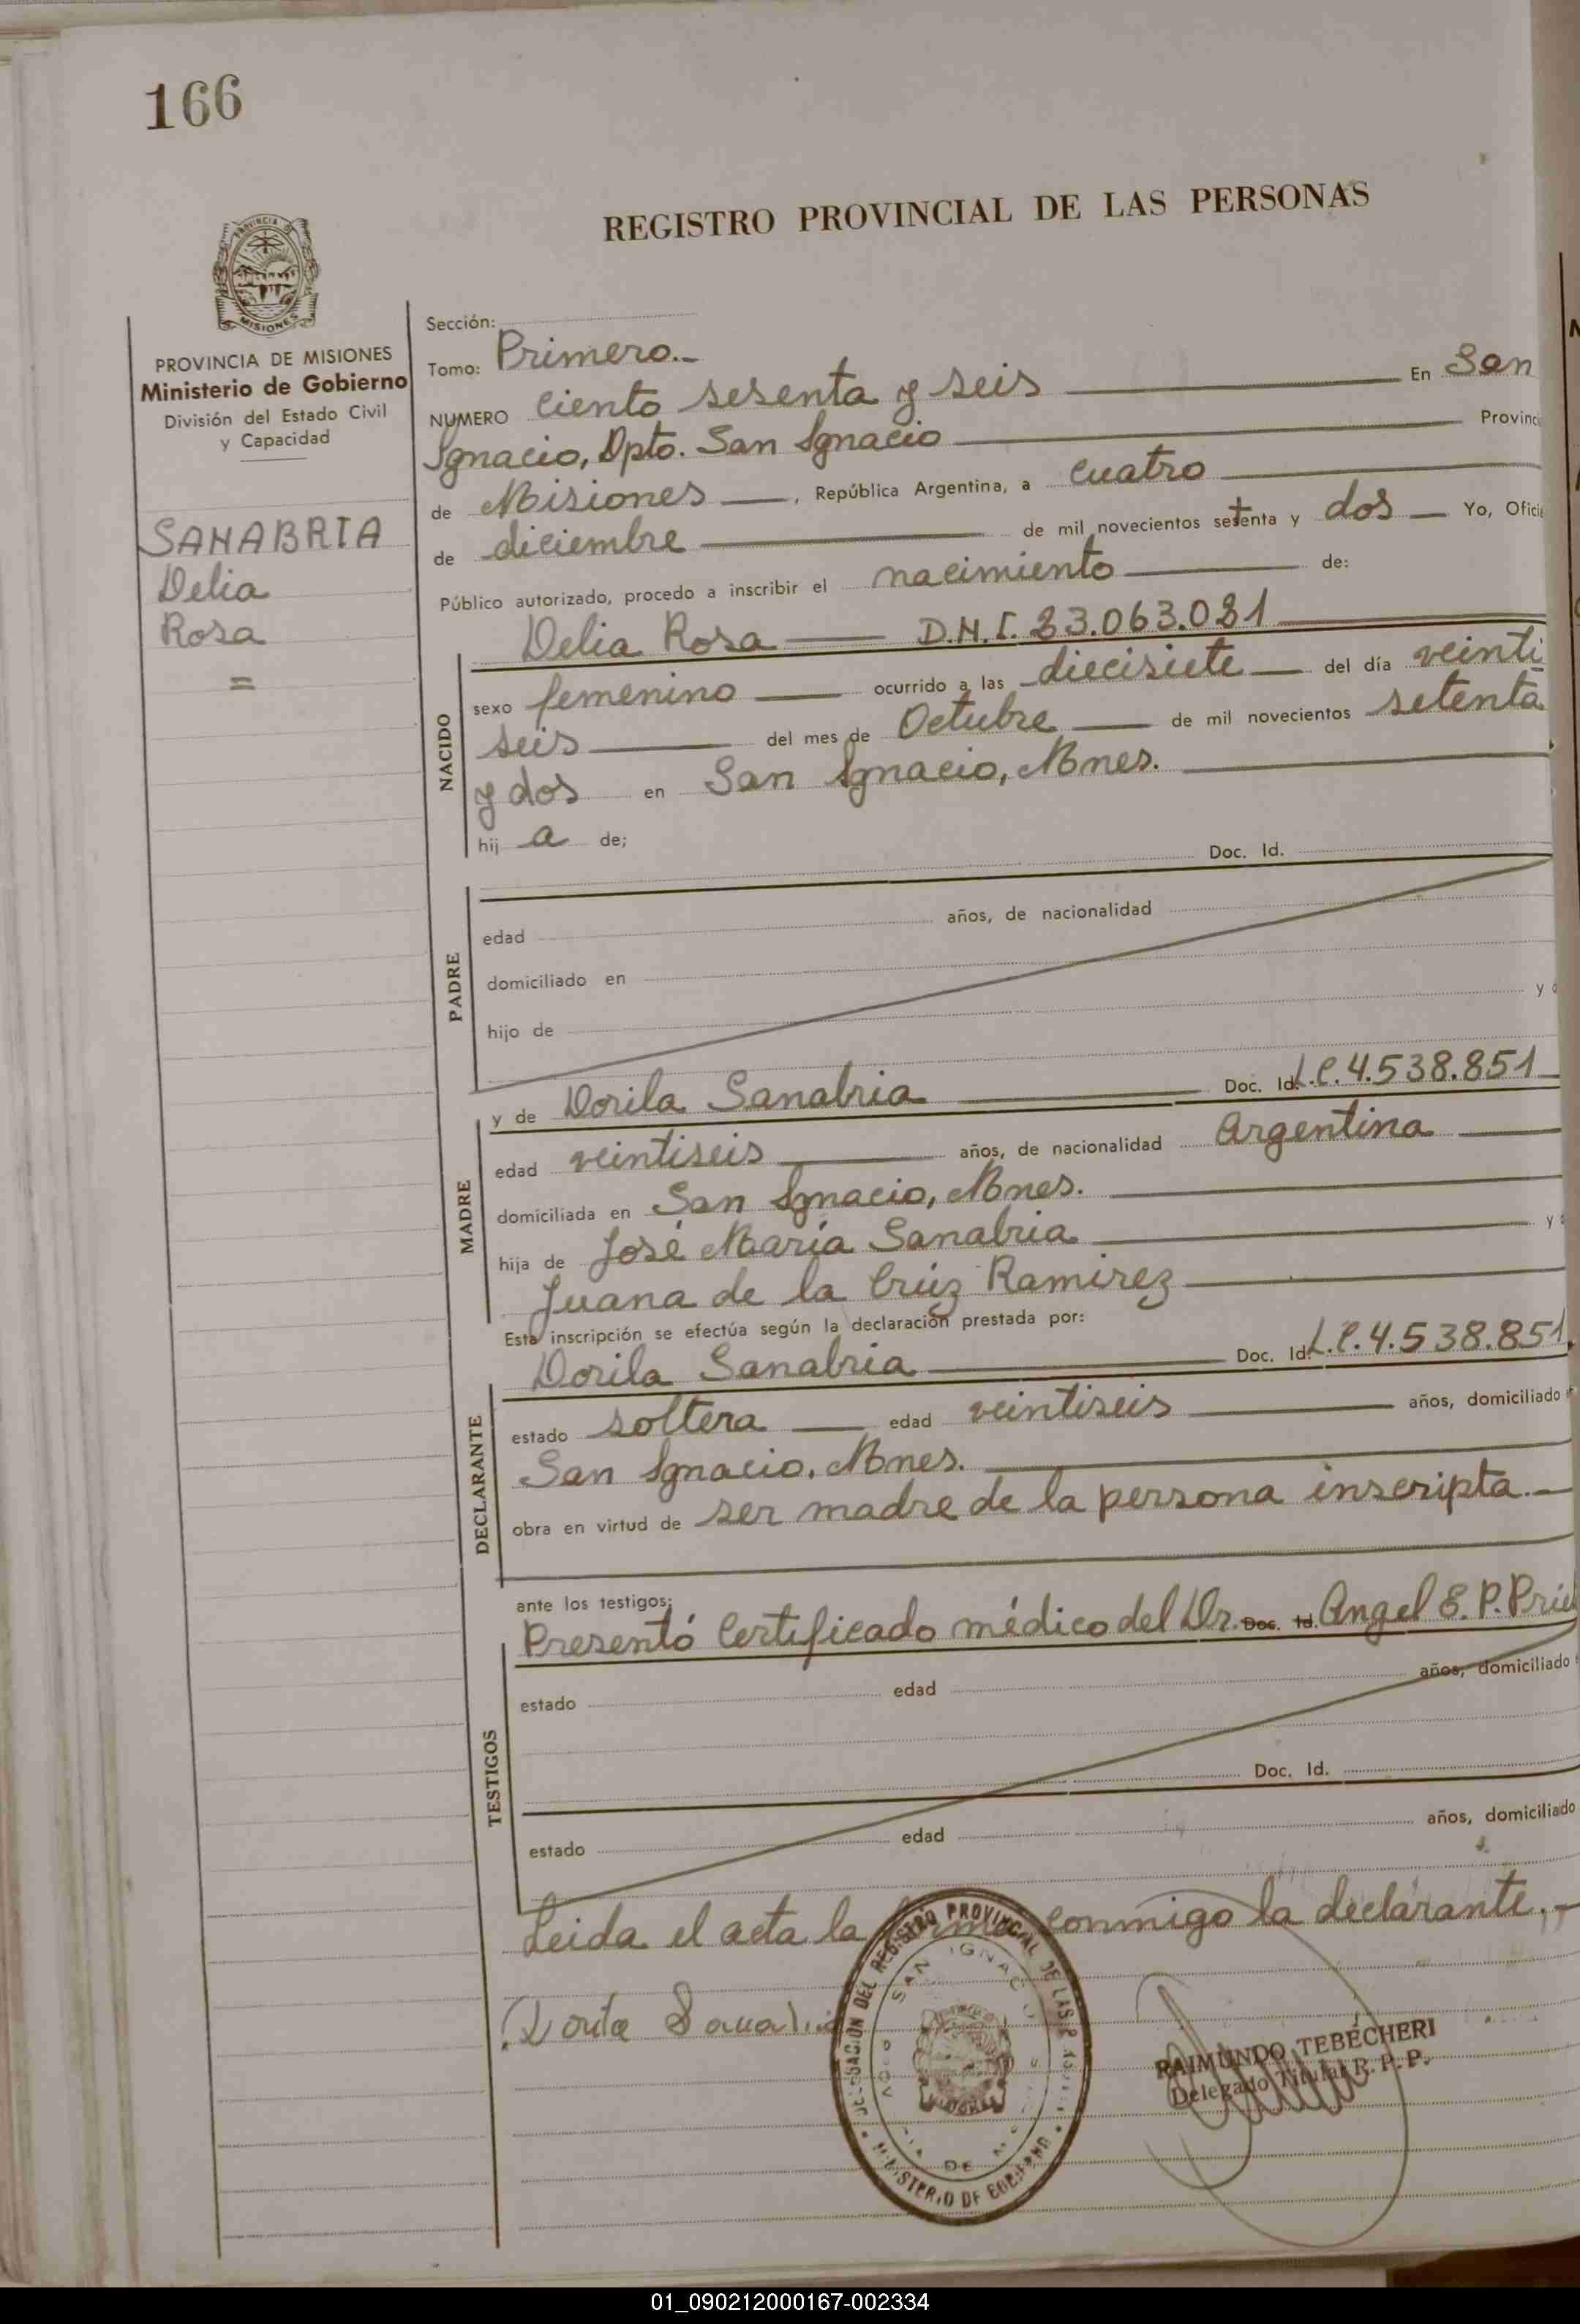 166
REGISTRO PROVINCIAL DE LAS PERSONAS
PROVINCIA MISIONES
PROVINCIA DE MISIONES
Ministerio de Gobierno
División del Estado Civil
y Capacidad
SANABRIA
Delia
Rosa
=
Sección:
Tomo: Primero.-
NUMERO Ciento sesenta y seis En San
Ignacio, Dpto. San Ignacio Provinci
de Misiones, República Argentina, a cuatro
de diciembre de mil novecientos setenta y dos Yo, Ofici
Público autorizado, procedo a inscribir el nacimiento de:
Delia Rosa D.N.I. 23.063.021
NACIDO
sexo femenino ocurrido a las diecisiete del día veinti
seis del mes de Octubre de mil novecientos setenta
y dos en San Ignacio, Mnes.
hij a de;
Doc. Id.
PADRE
edad años, de nacionalidad
domiciliado en
hijo de y
y de Dorila Sanabria Doc. Id. L.C. 4.538.851
MADRE
edad veintiseis años, de nacionalidad Argentina
domiciliada en San Ignacio, Mnes.
hija de José María Sanabria y
Juana de la Crúz Ramirez
Esta inscripción se efectúa según la declaración prestada por:
Dorila Sanabria Doc. Id. L.C. 4.538.851.
DECLARANTE
estado soltera edad veintiseis años, domiciliado
San Ignacio, Mnes.
obra en virtud de ser madre de la persona inscripta.-
ante los testigos:
Presentó Certificado médico del Dr. Doc. Id. Angel E. P.
TESTIGOS
estado edad años, domiciliado
Doc. Id.
estado edad años, domiciliado
Leida el acta la firma conmigo la declarante.-
Dorila Sanabria
DELEGACION DEL REGISTRO PROVINCIAL DE LAS
SAN IGNACIO
MINISTERIO DE GOBIERNO
RAIMUNDO TEBÉCHERI
Delegado Titular R. P. P.
01_090212000167-002334